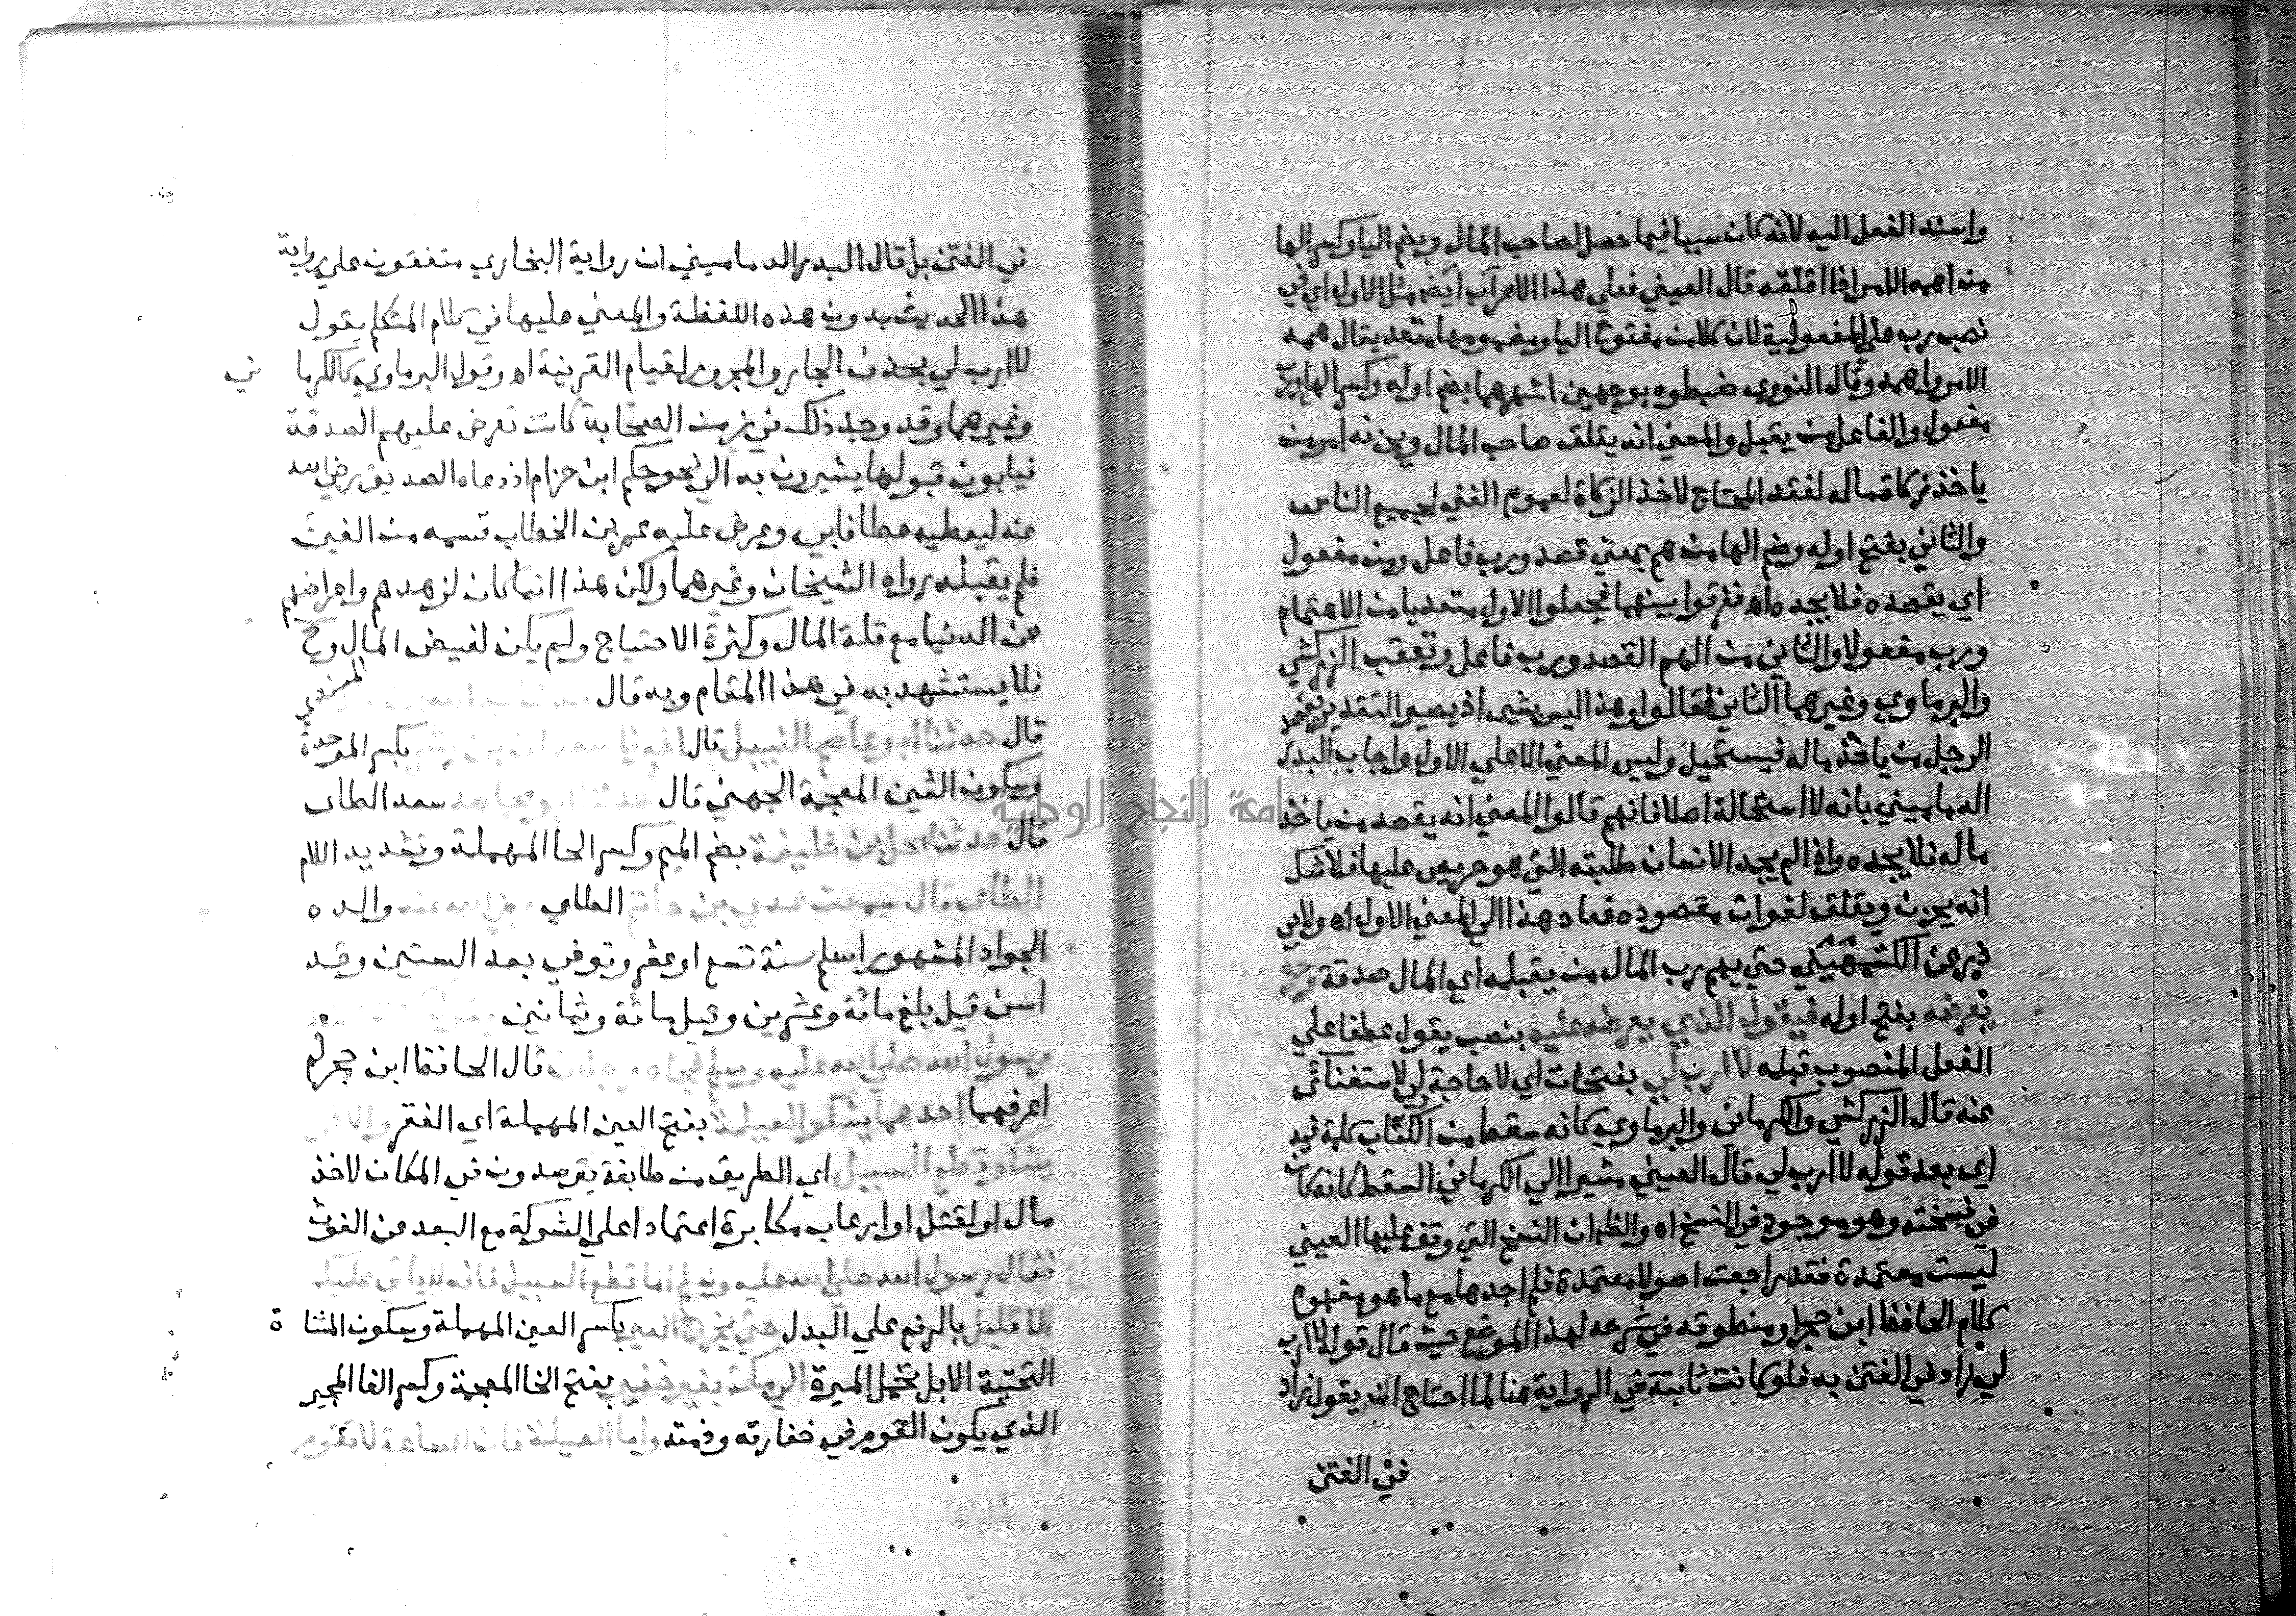 واسند الفعل اليه لانه كان سببا فيما حصل لصاحب المال وبضم اليا وكسر الها
من اهمه الامر اذا اقلقه قال العيني فعلي هذا الاعراب ايضا مثل الاول اي في
نصب رب علي المفعولية لان كلا من مفتوح اليا ومضمومها متعد يقال همه
الامر واهمه وقال النووي ضبطوه بوجهين اشهرهما بضم اوله وكسر الها ورب
مفعول والفاعل من يقبل والمعني انه يقلق صاحب المال ويحزنه امر من
ياخذ زكاة ماله لفقد المحتاج لاخذ الزكاة لعموم الغني لجميع الناس
والثاني بفتح اوله وضم الها من هم بمعني قصد ورب فاعل ومن مفعول
اي يقصده فلا يجده اه ففرقوا بينهما فجعلوا الاول متعديا من الاهتمام
ورب مفعولا والثاني من الهم القصد ورب فاعل وتعقب الزركشي
والبرماوي وغيرهما الثاني فقالوا وهذا ليس بشي اذ يصير التقدير يقصد
الرجل من ياخذ ماله فيستحيل وليس المعني الا علي الاول واجاب البدر
الدماميني بانه لا استحالة اصلا فانهم قالوا المعني انه يقصد من ياخذ
ماله فلا يجده واذا لم يجد الانسان طلبته التي هو حريص عليها فلا شك
انه يحزن ويقلق لفوات مقصوده فعاد هذا الي المعني الاول اه ولابي
ذر عن الكشميهني حتي يهم رب المال من يقبله اي المال صدقة وحتي
يعرضه بفتح اوله فيقول الذي يعرضه عليه بنصب يقول عطفا علي
الفعل المنصوب قبله لا ارب لي بفتحات اي لا حاجة لي لاستغنائي
عنه قال الزركشي والكرماني والبرماوي كانه سقط من الكتاب كلمة فيه
اي بعد قوله لا ارب لي قال العيني مشيرا الي الكرماني السقط كانه كان
في نسخته وهو موجود في النسخ اه والظاهر ان النسخ التي وقف عليها العيني
ليست معتمدة فقد راجعت اصولا معتمدة فلم اجدها مع ما هو مفهوم
كلام الحافظ ابن حجر ومنطوقه في شرحه لهذا الموضع حيث قال قوله لا ارب
لي زاد في الفتن به فلو كانت ثابتة في الرواية هنا لما احتاج ان يقول زاد
في الفتن
في الفتن بل قال البدر الدماميني ان رواية البخاري متفقون علي رواية
هذا الحديث بدون هذه اللفظة والمعني عليها في كلام المتكلم يقول
لا ارب لي بحذف الجار والمجرور لقيام القرينة اه وقول البرماوي كالكرماني
وغيرهما وقد وجد ذلك في زمن الصحابة كانت تعرض عليهم الصدقة
فيابون قبولها يشيرون به الي نحو حكيم ابن حزام اذ دعاه الصديق رضي الله
عنه ليعطيه عطا فابي وعرض عليه عمر بن الخطاب قسمه من الفيء
فلم يقبله رواه الشيخان وغيرهما ولكن هذا انما كان لزهدهم واعراضهم
عن الدنيا مع قلة المال وكثرة الاحتياج ولم يكن لفيض المال وح
فلا يستشهد به في هذا المقام وبه قال المسندي
قال حدثنا ابو عاصم النبيل قال اخبرنا بكسر الموحدة
وسكون الشين المعجمة الجهني قال سعد الطاي
قال حدثنا محل بن خليفة بضم الميم وكسر الحا المهملة وتشديد اللام
الطائي قال سمعت عدي بن حاتم الطاي والده
الجواد المشهور اسلم سنة تسع او عشر وتوفي بعد الستين وقد
اسن قيل بلغ مائة وعشرين وقيل مائة وثمانين
رسول الله صلي الله عليه وسلم فجاه رجلان قال الحافظ ابن حجر لم
اعرفهما احدهما يشكو العيلة بفتح العين المهملة اي الفقر والاخر
يشكو قطع السبيل اي الطريق من طايفة يترصدون في المكان لاخذ
مال او لقتل او ارعاب مكابرة اعتمادا علي الشوكة مع البعد عن الغوث
فقال رسول الله صلي الله عليه وسلم اما قطع السبيل فانه لا ياتي عليك
الا قليل بالرفع علي البدل حتي تخرج العير بكسر العين المهملة وسكون المثناة
التحتية الابل تحمل الميرة الي مكة بغير خفير بفتح الخا المعجمة وكسر الفا المجير
الذي يكون القوم في خفارته وذمته واما العيلة فان الساعة لا تقوم